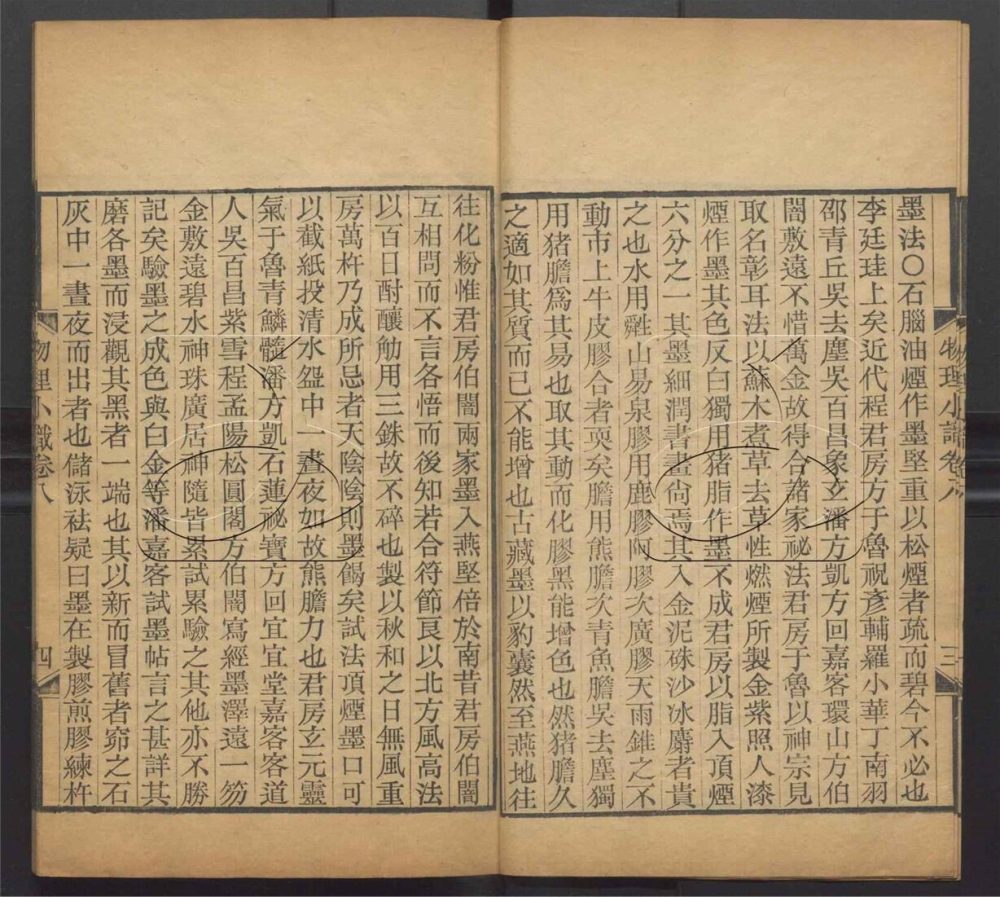 物理小識卷八
三
墨法〇石腦油煙作墨堅重以松煙者疏而碧今不必也
李廷珪上矣近代程君房方于魯祝彥輔羅小華丁南羽
邵青丘吳去塵吳百昌象玄潘方凱方回嘉客環山方伯
闇敷遠不惜萬金故得合諸家祕法君房于魯以神宗見
取名彰耳法以蘇木煮草去草性燃煙所製金紫照人漆
煙作墨其色反白獨用猪脂作墨不成君房以脂入頂煙
六分之一其墨細潤書畫尙焉其入金泥硃沙冰麝者貴
之也水用黟山易泉膠用鹿膠阿膠次廣膠天雨錐之不
動市上牛皮膠合者耎矣膽用熊膽次青魚膽吳去塵獨
用猪膽爲其易也取其動而化膠黑能增色也然猪膽久
之適如其質而已不能增也古藏墨以豹囊然至燕地往
往化粉惟君房伯闇兩家墨入燕堅倍於南昔君房伯闇
互相問而不言各悟而後知若合符節良以北方風高法
以百日酎釀觔用三銖故不碎也製以秋和之日無風重
房萬杵乃成所忌者天陰陰則墨餲矣試法頂煙墨口可
以截紙投清水盌中一晝夜如故熊膽力也君房玄元靈
氣于魯青鱗髓潘方凱石蓮祕寶方回宜宜堂嘉客客道
人吳百昌紫雪程孟陽松圓閣方伯闇寫經墨澤遠一笏
金敷遠碧水神珠廣居神隨皆累試累驗之其他亦不勝
記矣驗墨之成色與白金等潘嘉客試墨帖言之甚詳其
磨各墨而浸觀其黑者一端也其以新而冒舊者窌之石
灰中一晝夜而出者也儲泳祛疑曰墨在製膠煎膠練杵
物理小識卷八
四